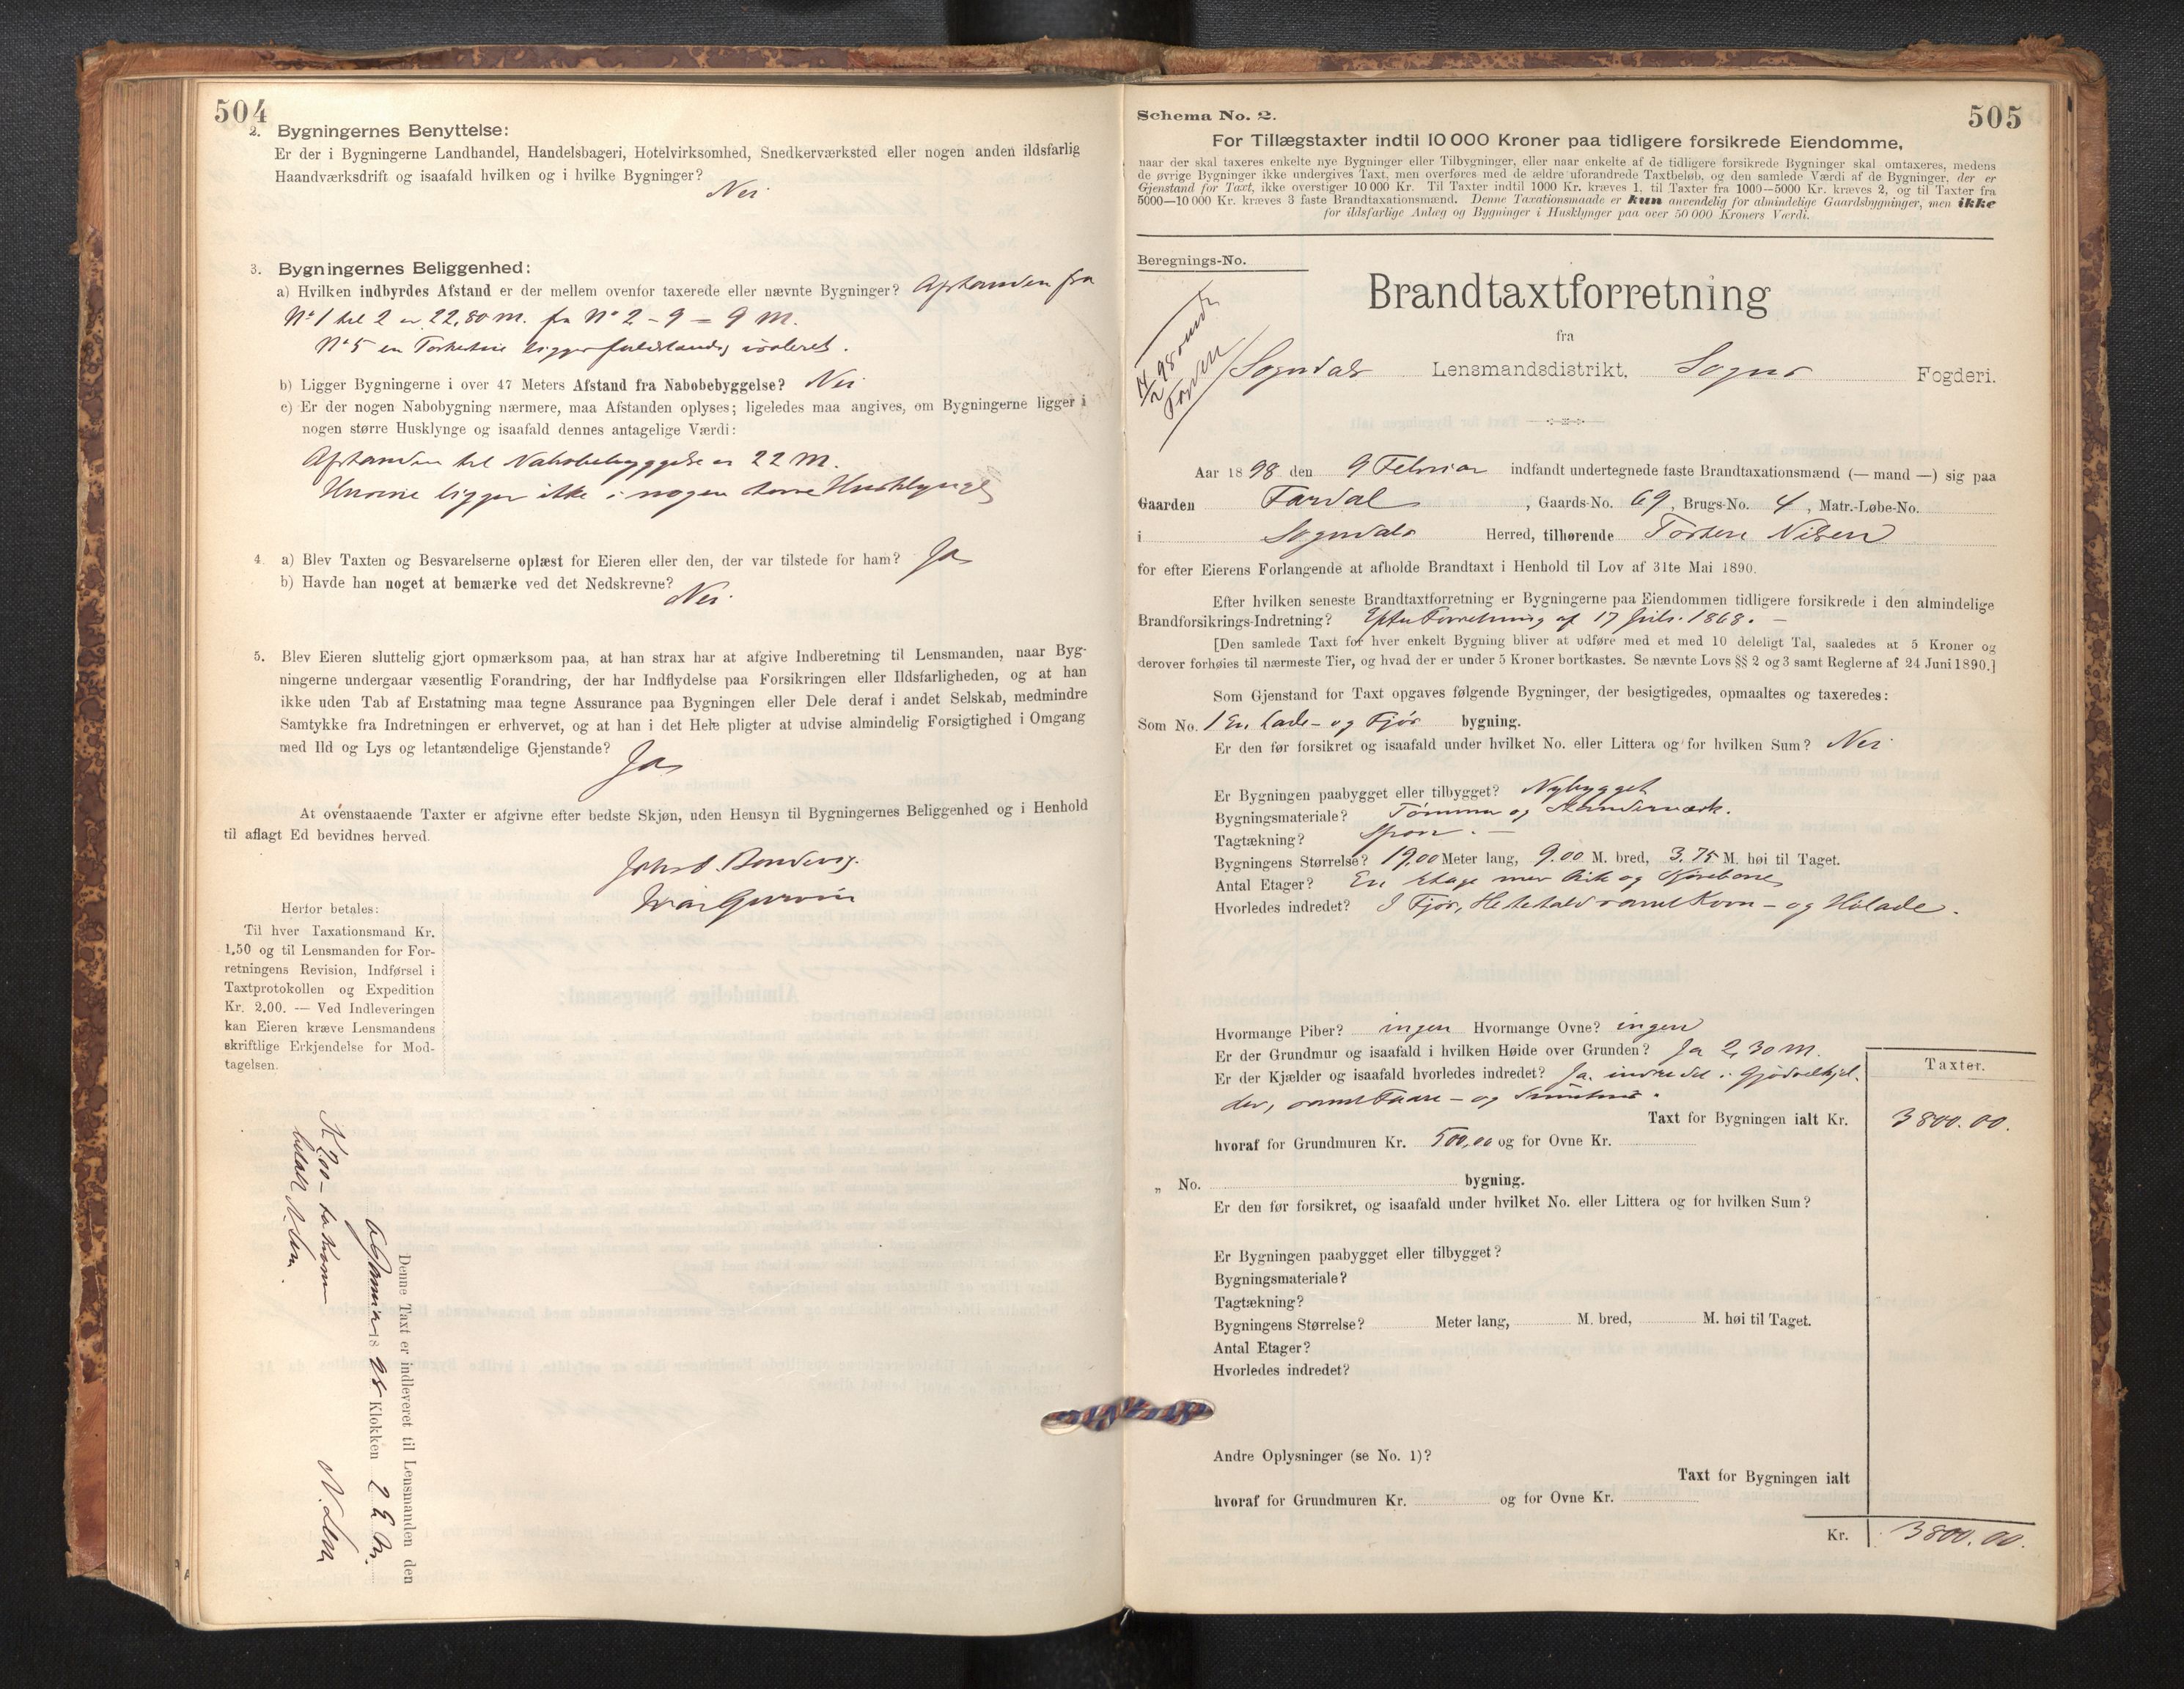 504
2. Bygningernes Benyttelse:
Er der i Bygningerne Landhandel, Handelsbageri, Hotelvirksomhed, Snedkerværksted eller nogen anden ildsfarlig
Haandværksdrift og isaafald hvilken og i hvilke Bygninger?
Nei
3. Bygningernes Beliggenhed:
a) Hvilken indbyrdes Afstand er der mellem ovenfor taxerede eller nævnte Bygninger? Afstanden fra
No 1 til 2 er 22,80 m. fra No 2 - 9 = 9 M.
No 5 en ligger fuldstændig isoleret.
b) Ligger Bygningerne i over 47 Meters Afstand fra Nabobebyggelse? Nei
c) Er der nogen Nabobygning nærmere, maa Afstanden oplyses; ligeledes maa angives, om Bygningerne ligger i
nogen større Husklynge og isaafald dennes antagelige Værdi:
Afstanden til Nabobebyggelse er 22 M.
Husene ligger ikke i nogen større Husklynge
4. a) Blev Taxten og Besvarelserne oplæst for Eieren eller den, der var tilstede for ham? Ja
b) Havde han noget at bemærke ved det Nedskrevne?
Nei.
5. Blev Eieren sluttelig gjort opmærksom paa, at han strax har at afgive Indberetning til Lensmanden, naar Byg-
ningerne undergaar væsentlig Forandring, der har Indflydelse paa Forsikringen eller Ildsfarligheden, og at han
ikke uden Tab af Erstatning maa tegne Assurance paa Bygningen eller Dele deraf i andet Selskab, medmindre
Samtykke fra Indretningen er erhvervet, og at han i det Hele pligter at udvise almindelig Forsigtighed i Omgang
med Ild og Lys og letantændelige Gjenstande?
Ja
At ovenstaaende Taxter er afgivne efter bedste Skjøn, uden Hensyn til Bygningernes Beliggenhed og i Henhold
til aflagt Ed bevidnes herved.
Herfor betales:
Til hver Taxationsmand Kr.
1,50 og til Lensmanden for For-
retningens Revision, Indførsel i
Taxtprotokollen og Expedition
Kr. 2,00. — Ved Indleveringen
kan Eieren kræve Lensmandens
skriftlige Erkjendelse for Mod-
tagelsen.
Denne Taxt er indleveret til Lensmanden den
18 98 Klokken 2 E. M.
betalt
505
Schema No. 2.
For Tillægstaxter indtil 10 000 Kroner paa tidligere forsikrede Eiendomme,
naar der skal taxeres enkelte nye Bygninger eller Tilbygninger, eller naar enkelte af de tidligere forsikrede Bygninger skal omtaxeres, medens
de øvrige Bygninger ikke undergives Taxt, men overføres med de ældre uforandrede Taxtbeløb, og den samlede Værdi af de Bygninger, der er
Gjenstand for Taxt, ikke overstiger 10 000 Kr. Til Taxter indtil 1000 Kr. kræves 1, til Taxter fra 1000—5000 Kr. kræves 2, og til Taxter fra
5000—10 000 Kr. kræves 3 faste Brandtaxationsmænd. Denne Taxationsmaade er kun anvendelig for almindelige Gaardsbygninger, men ikke
for ildsfarlige Anlæg og Bygninger i Husklynger paa over 50 000 Kroners Værdi.
Beregnings-No.
Brandtaxtforretning
fra
Sogndals Lensmandsdistrikt, Sogns Fogderi.
Aar 1898 den 9 Februar indfandt undertegnede faste Brandtaxationsmænd (— mand —) sig paa
Gaarden Fardal, Gaards-No. 69, Brugs-No. 4, Matr.-Løbe-No.
i Sogndals Herred, tilhørende Torsten Nilsen
for efter Eierens Forlangende at afholde Brandtaxt i Henhold til Lov af 31te Mai 1890.
Efter hvilken seneste Brandtaxtforretning er Bygningerne paa Eiendommen tidligere forsikrede i den almindelige
Brandforsikrings-Indretning? Efter Forretning af 17 Juli 1868. –
[Den samlede Taxt for hver enkelt Bygning bliver at udføre med et med 10 deleligt Tal, saaledes at 5 Kroner og
derover forhøies til nærmeste Tier, og hvad der er under 5 Kroner bortkastes. Se nævnte Lovs §§ 2 og 3 samt Reglerne af 24 Juni 1890.]
Som Gjenstand for Taxt opgaves følgende Bygninger, der besigtigedes, opmaaltes og taxeredes:
Som No. 1 En Lade- og Fjøs bygning.
Er den før forsikret og isaafald under hvilket No. eller Littera og for hvilken Sum? Nei
Er Bygningen paabygget eller tilbygget? Nybygget
Bygningsmateriale? Tømmer og Standerværk.
Tagtækning? Spon. –
Bygningens Størrelse? 19,00 Meter lang, 9.00 M. bred, 3.75 M. høi til Taget.
Antal Etager? En Etage med
Hvorledes indredet? I Fjøs, Hestestald samt Korn- og Hølade.
Hvormange Piber? ingen Hvormange Ovne? ingen
Er der Grundmur og isaafald i hvilken Høide over Grunden? Ja 2,30 M.
Er der Kjælder og isaafald hvorledes indredet? Ja. indredet i Gjødselkjel-
der, samt Faare- og
Taxter.
Taxt for Bygningen ialt Kr. 3800.00.
hvoraf for Grundmuren Kr. 500,00 og for Ovne Kr.
„ No. bygning.
Er den før forsikret, og isaafald under hvilket No. eller Littera og for hvilken Sum?
Er Bygningen paabygget eller tilbygget?
Bygningsmateriale?
Tagtækning?
Bygningens Størrelse? Meter lang, M. bred, M. høi til Taget.
Antal Etager?
Hvorledes indredet?
Andre Oplysninger (se No. 1)?
Taxt for Bygningen ialt
hvoraf for Grundmuren Kr. og for Ovne Kr.
Kr. 3800.00.